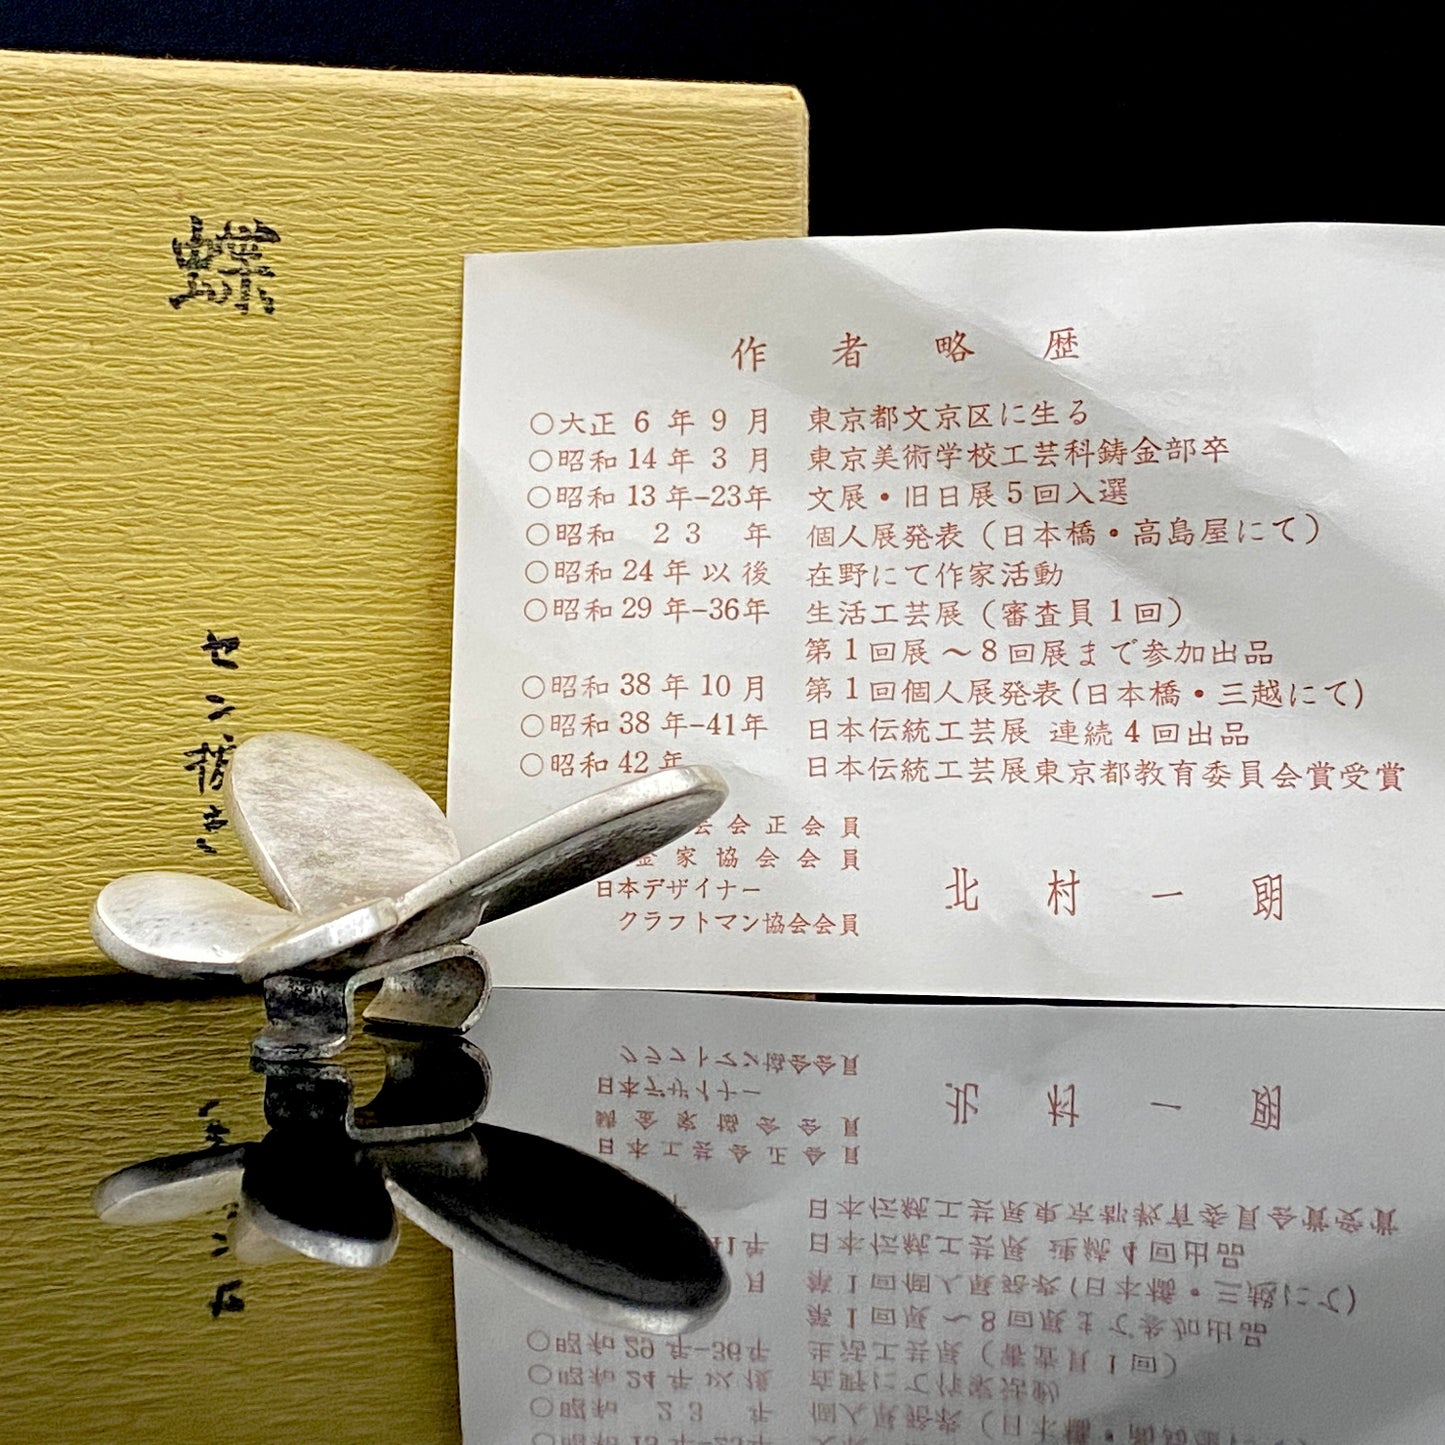 蝶
セン抜き
作者略歴
○大正 6 年 9 月 東京都文京区に生る
○昭和 14 年 3 月 東京美術学校工芸科鋳金部卒
○昭和 13 年-23年 文展・旧日展 5 回入選
○昭和 23 年 個人展発表（日本橋・高島屋にて）
○昭和 24 年 以 後 在野にて作家活動
○昭和 29 年-36年 生活工芸展（審査員 1 回）
第 1 回展 ～ 8 回展まで参加出品
○昭和 38 年 10 月 第 1 回個人展発表(日本橋・三越にて)
○昭和 38 年-41年 日本伝統工芸展 連続 4 回出品
○昭和 42 年 日本伝統工芸展東京都教育委員会賞受賞
芸会正会員
金家協会会員
日本デザイナー
クラフトマン協会会員
北村一朗